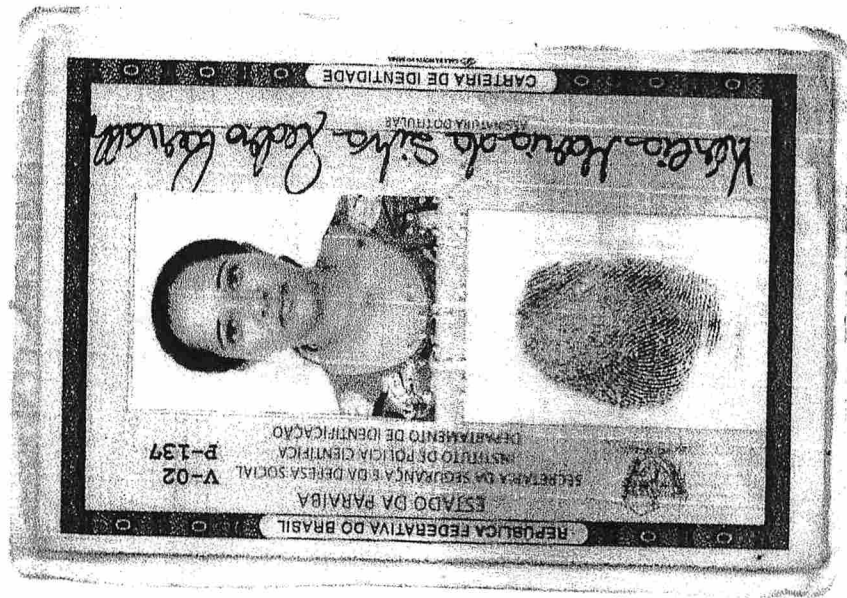 REPÚBLICA FEDERATIVA DO BRASIL
ESTADO DA PARAÍBA
SECRETARIA DA SEGURANÇA E DA DEFESA SOCIAL
V-02
INSTITUTO DE POLÍCIA CIENTÍFICA
P-137
DEPARTAMENTO DE IDENTIFICAÇÃO
Maria da Silva Pedro
ASSINATURA DO TITULAR
CARTEIRA DE IDENTIDADE